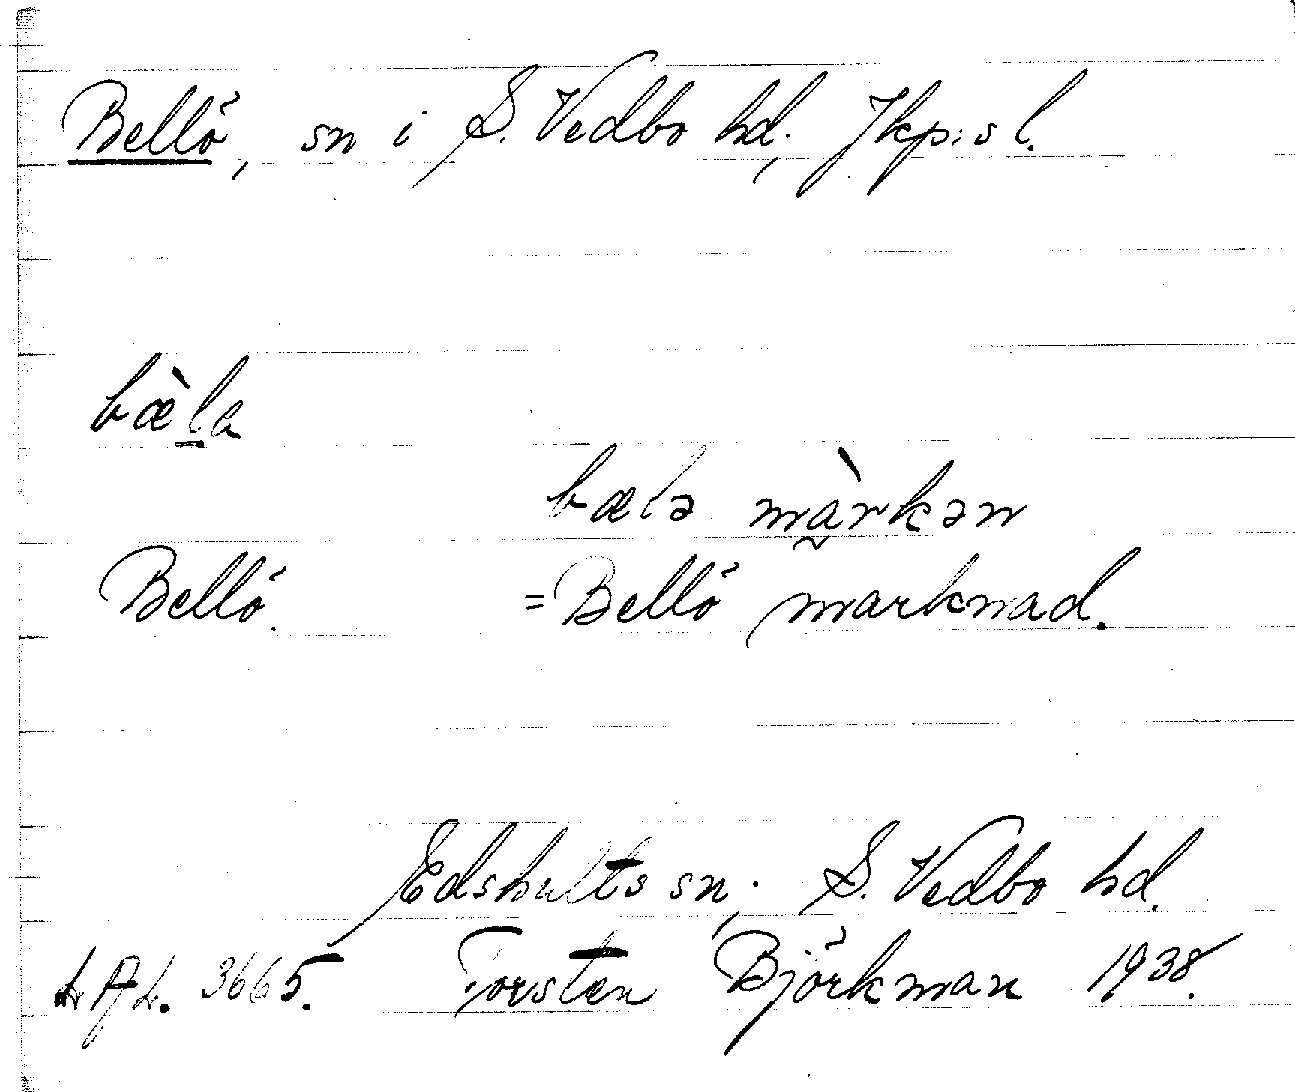 Bellö, sn i S. Vedbo hd, Jkp:s l.
bæ̀l̠a
bælə màrkən
Bellö. = Bellö marknad.
Edshults sn, S. Vedbo hd.
LAL. 3665. Torsten Björkman 1938.